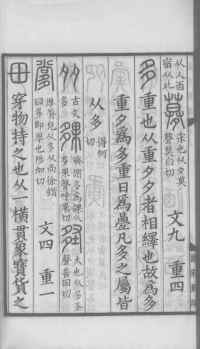 宋也从夕莫聲莫白切 文九 重四
多 重也从重夕夕者相繹也故爲多
重夕爲多重日爲曡凡多之屬皆
从多 得何切
古文多 齊謂多爲夥从多果聲乎果切 大也从多圣聲苦回切
厚脣皃从多从尚徐鍇曰多即厚也陟加切 文四 重一
毌 穿物持之也从一橫貫象寶貨之